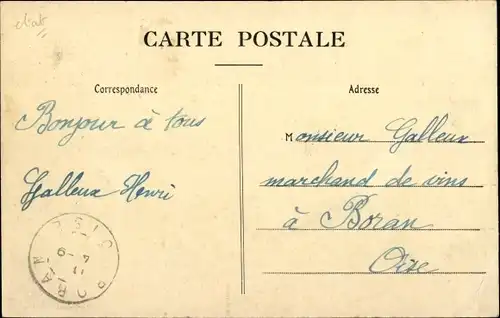 état
CARTE POSTALE
Correspondance
Adresse
Bonjour à tous
Galleux Henri
Monsieur Galleux
marchand de vins
à Boran
Oise
BORAN
OISE